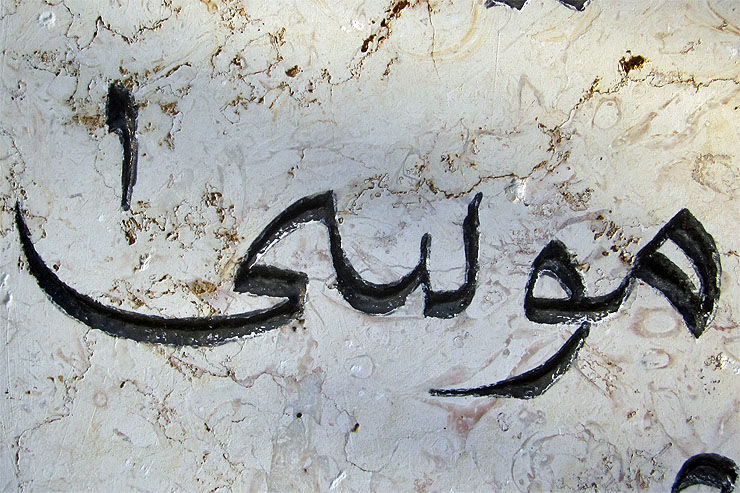 موسىٰ